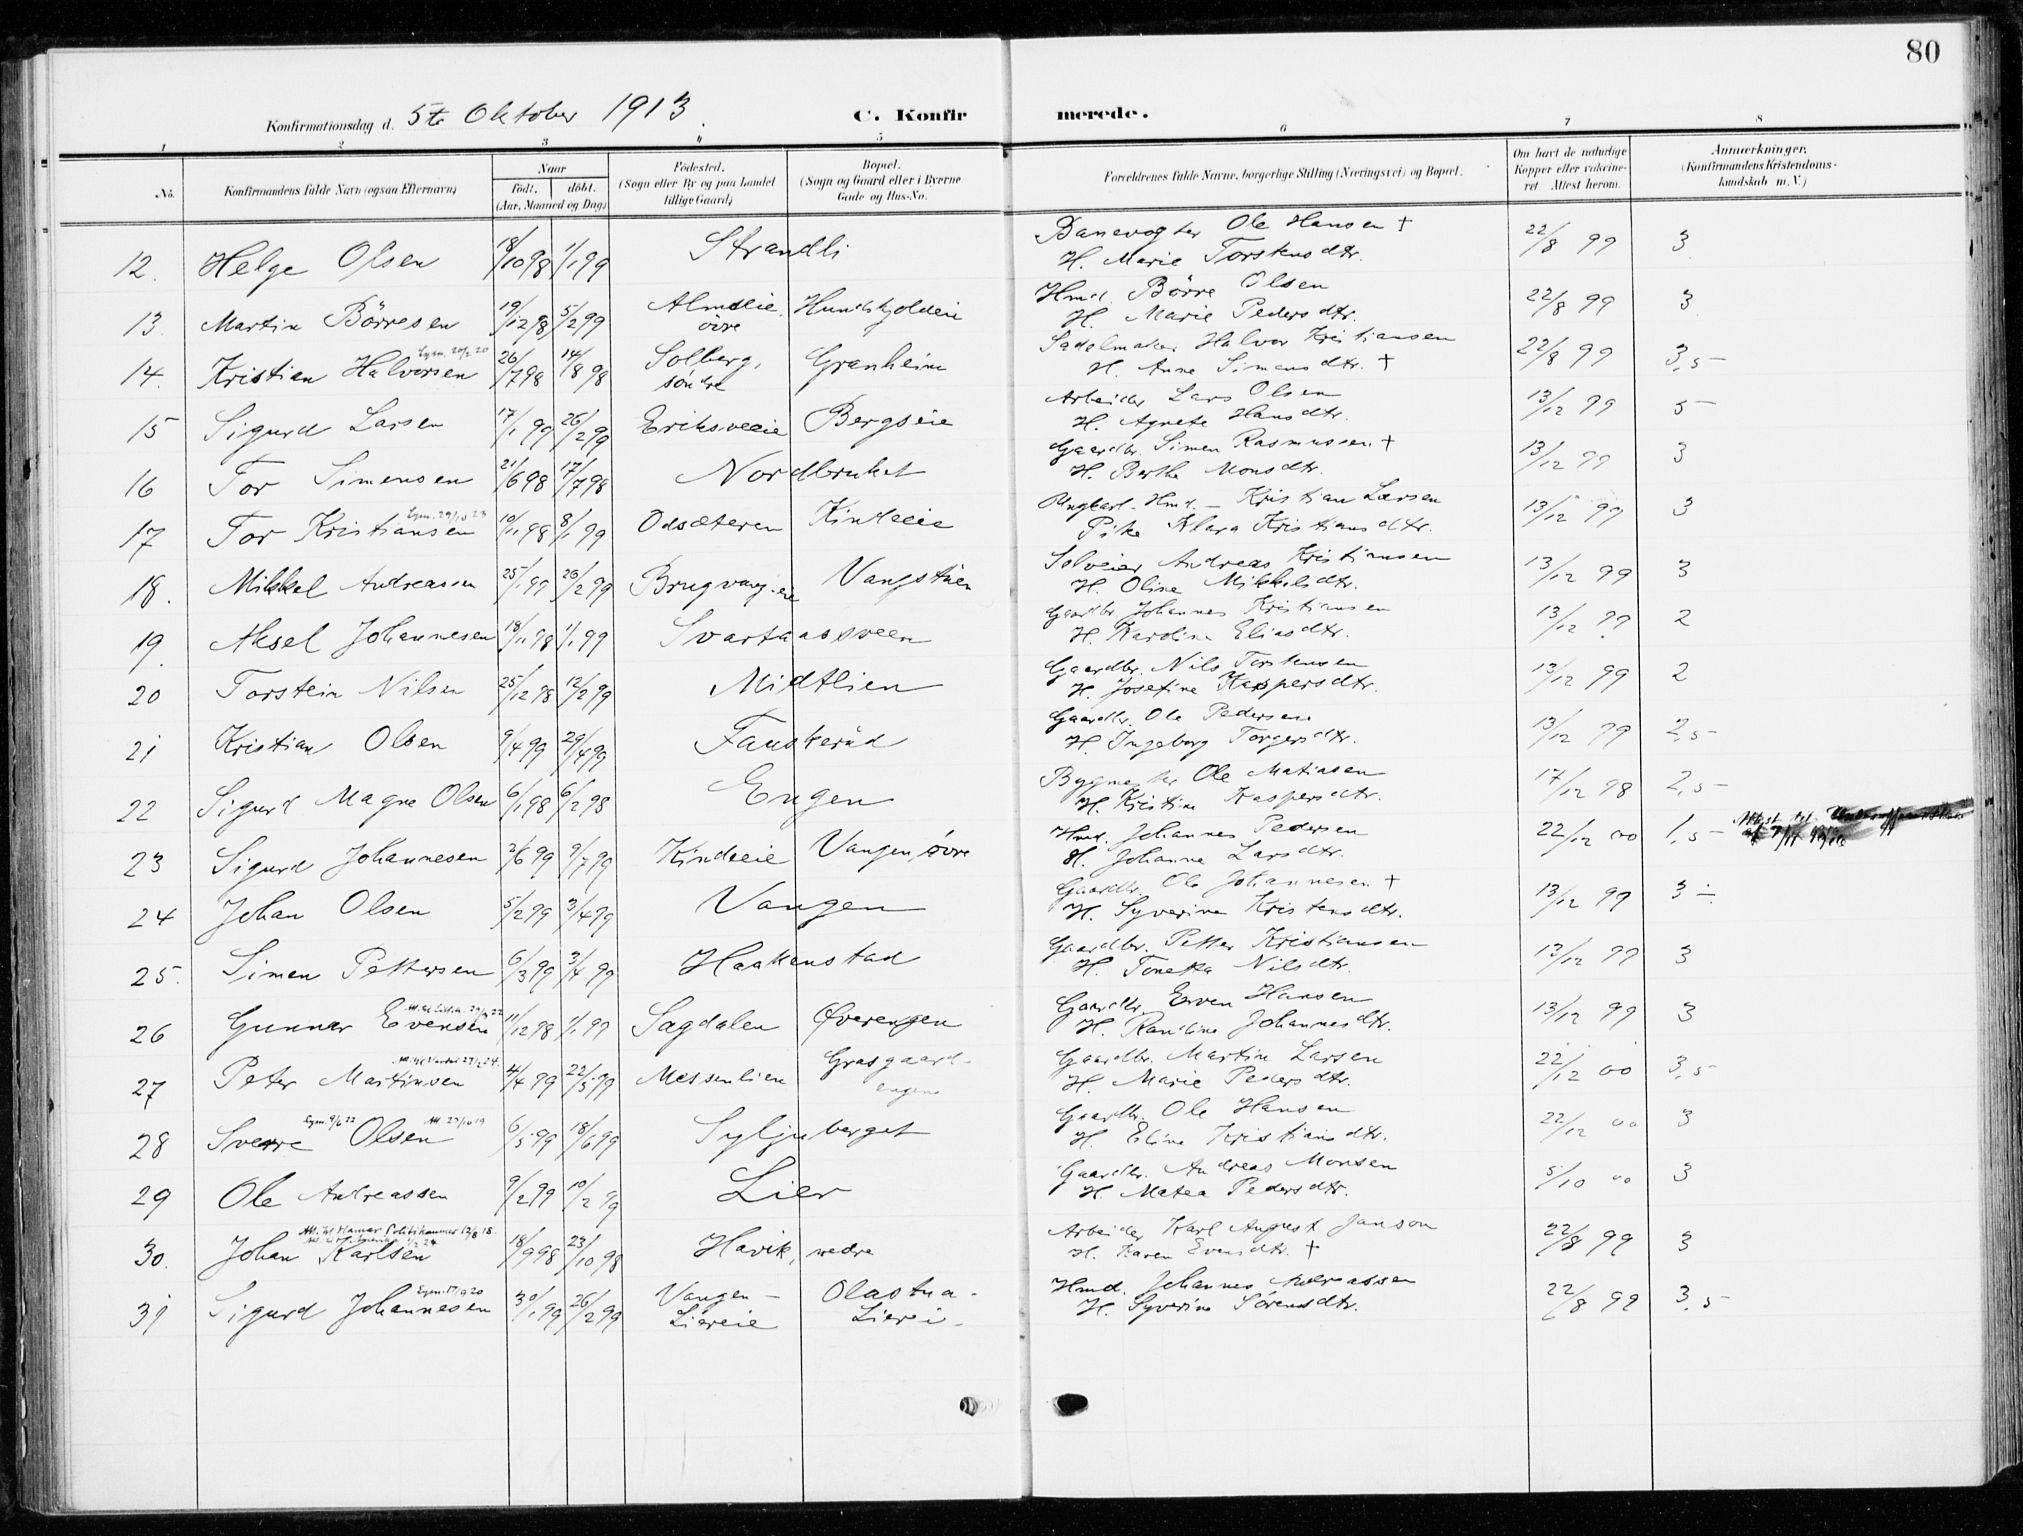 80
Konfirmationsdag d. 5te Oktober 1913. C. Konfirmerede.
1 2 3 4 5 6 7 8
No.
Konfirmandens fulde Navn (ogsaa Efternavn)
Naar
født. døbt.
(Aar, Maaned og Dag)
Fødested.
(Sogn eller By og paa Landet
tillige Gaard)
Bopæl.
(Sogn og Gaard eller i Byerne
Gade og Hus-No.
Forældrenes fulde Navne, borgerlige Stilling (Næringsvei) og Bopæl.
Om havt de naturlige
Kopper eller vakcine-
ret. Attest herom.
Anmærkninger.
(Konfirmandens Kristendoms-
kundskab m. V.)
12. Helge Olsen 18/10 98 1/1 99 Strandli Banevogter Ole Hansen + 22/8 99 3
H. Marie Torstensdtr.
13. Martin Börresen 19/12 98 5/2 99 Almeie Hundskjoldeie Hmd. Börre Olsen 22/8 99 3
øvre H. Marie Pedersdtr.
14. Kristian Halvorsen 26/7 98 14/8 98 Solberg, Granheim Sadelmaker Halvor Kristiansen 22/8 99 3,5
søndre H. Anne Simensdtr. +
15 Sigurd Larsen 17/1 99 26/2 99 Eriksveeie Bergseie Arbeider Lars Olsen 13/12 99 5
H. Agnete Hansdtr.
16 Tor Simensen 21/6 98 17/7 98 Nordbruket Gaardbr. Simen Rasmussen + 13/12 99 3
H. Berthe Monsdtr.
17 Tor Kristiansen 10/11 98 8/1 99 Odsæteren Kindseie Ungkarl Hmd. - Kristian Larsen 13/12 99 3
Pike Klara Kristiansdtr.
18. Mikkel Andreassen 25/1 99 26/2 99 Brugvang.eie Vangstuen Selveier Andreas Kristiansen 13/12 99 3
H. Oline Mikkelsdtr.
19. Aksel Johannesen 18/11 98 1/1 99 Svartaassveen Gaardbr. Johannes Kristiansen 13/12 99 2
H. Karoline Eliasdtr.
20 Torstein Nilsen 25/12 98 12/2 99 Midtlien Gaardbr. Nils Torstensen 13/12 99 2
H. Josefine Kaspersdtr.
21 Kristian Olsen 9/4 99 29/4 99 Fauskerud Gaardbr. Ole Pedersen 13/12 99 2,5
H. Ingeborg Torgersdtr.
22 Sigurd Magne Olsen 6/1 98 6/2 98 Engen Bygmester Ole Matiasen 17/12 98 2,5
H. Kristine Kaspersdtr.
23 Sigurd Johannesen 2/6 99 9/7 99 Kindseie Vangen, øvre Hmd. Johannes Pedersen 22/12 00 1,5 Attest til
H. Johanne Larsdtr.
24 Johan Olsen 5/2 99 3/4 99 Vangen Gaardbr. Ole Johannesen + 13/12 99 3 ÷
H. Syverine Kristensdtr.
25. Simen Pettersen 6/3 99 3/4 99 Haakenstad Gaardbr. Petter Kristiansen 13/12 99 3
H. Tonetta Nilsdtr.
26 Gunnar Evensen 11/12 98 1/1 99 Sagdalen Øverengen Gaardbr. Even Hansen 13/12 99 3
H. Randine Johannesdtr.
27 Peter Martinsen 4/4 99 22/5 99 Messenlien Grasgaard- Gaardbr. Martin Larsen 22/12 00 3,5
engen H. Marie Pedersdtr.
28 Sverre Olsen 6/5 99 18/6 99 Syljuberget Gaardbr. Ole Hansen 22/12 00 3
H. Eline Kristiansdtr.
29 Ole Andreassen 9/2 99 10/2 99 Lier Gaardbr. Andreas Monsen 5/10 00 3
H. Matea Pedersdtr.
Att. til Hamar Politikammer 12/8 18.
30. Johan Karlsen 18/9 98 23/10 98 Havik, nedre Arbeider Karl August Janson 22/8 99 3
H. Karen Evensdtr. +
31 Sigurd Johannesen 30/1 99 26/2 99 Vangen - Olastua- Hmd. Johannes Andreassen 22/8 99 3,5
Liereie Lierei- H. Syverine Sørensdtr.